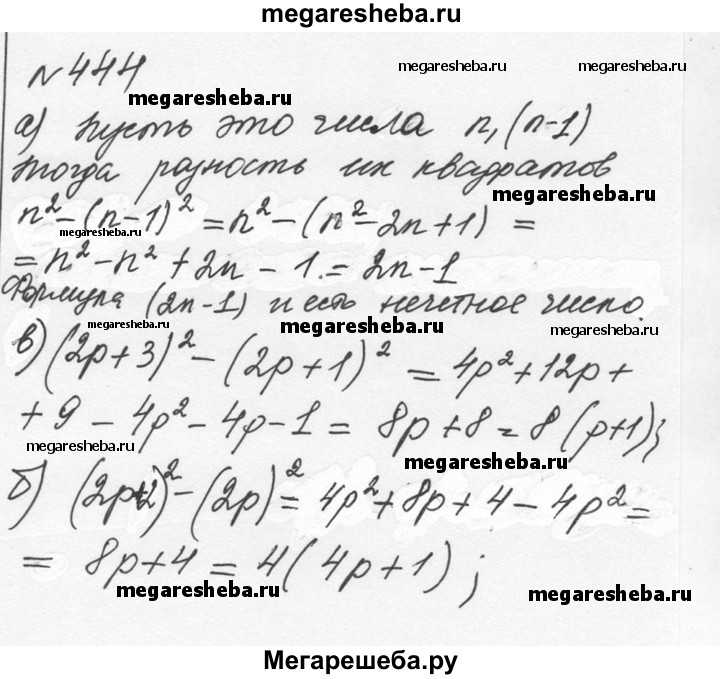 megaresheba.ru
№444
megaresheba.ru
megaresheba.ru
а) пусть это числа n, (n-1)
тогда разность их квадратов
megaresheba.ru
n² - (n-1)² = n² - (n² - 2n + 1) =
megaresheba.ru
= n² - n² + 2n - 1 = 2n - 1
Формула (2n-1) и есть нечетное число.
megaresheba.ru
megaresheba.ru
megaresheba.ru
в) (2p+3)² - (2p+1)² = 4p² + 12p +
+ 9 - 4p² - 4p - 1 = 8p + 8 = 8(p+1);
megaresheba.ru
megaresheba.ru
б) (2p+2)² - (2p)² = 4p² + 8p + 4 - 4p² =
= 8p + 4 = 4(4p+1);
megaresheba.ru
megaresheba.ru
Мегарешеба.ру